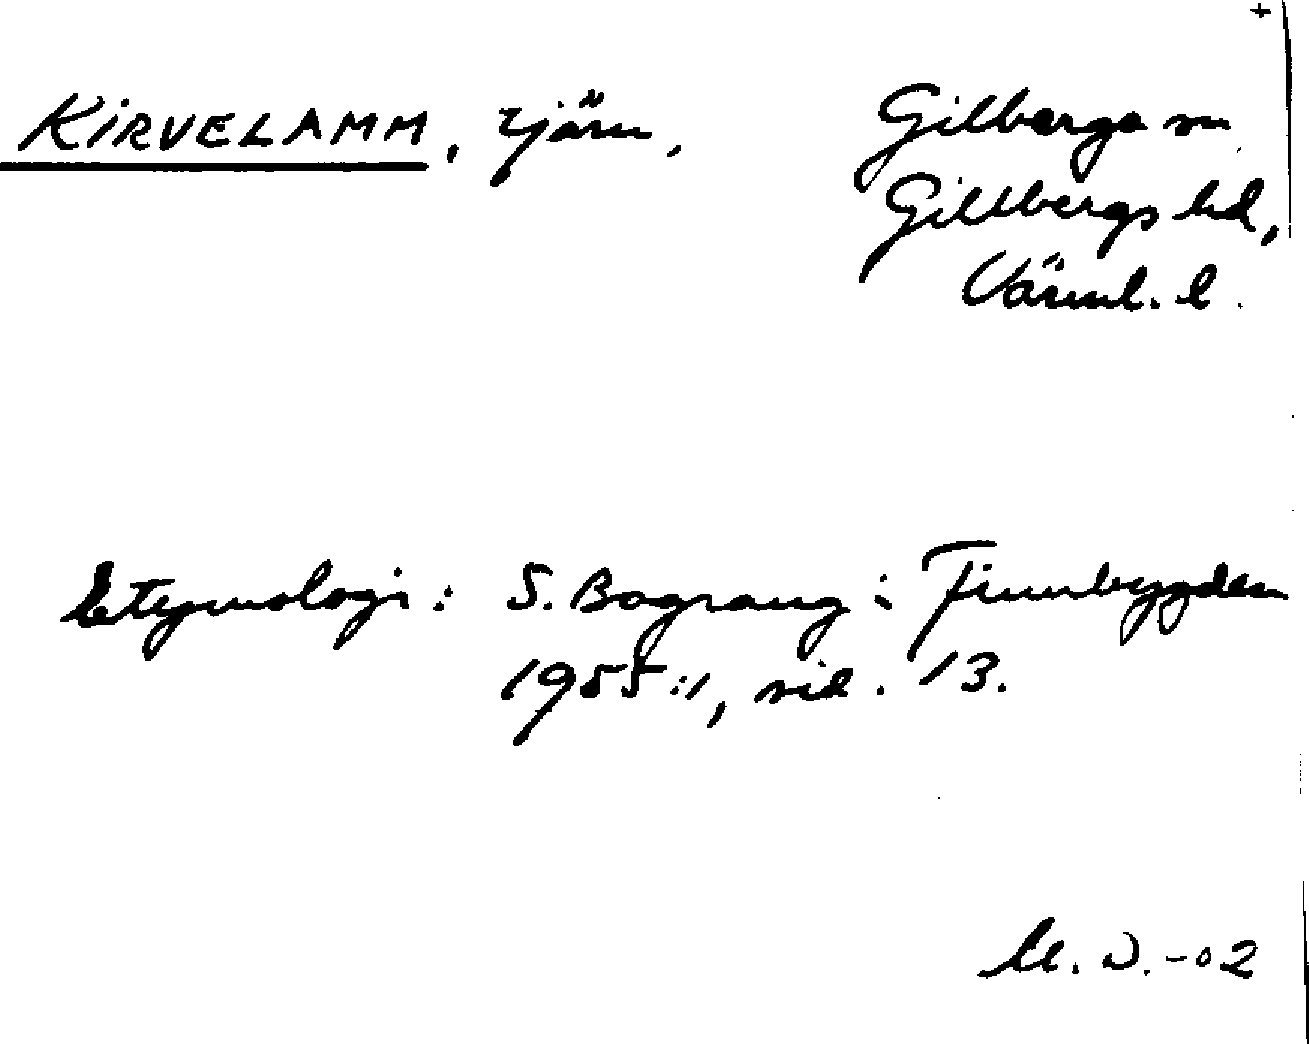 +
KIRVELAMM, tjärn, Gillberga sn
Gillbergs hd,
Värml. l.
Etymologi: S. Bograng i Finnbygden
1955:1, sid. 13.
D. -02